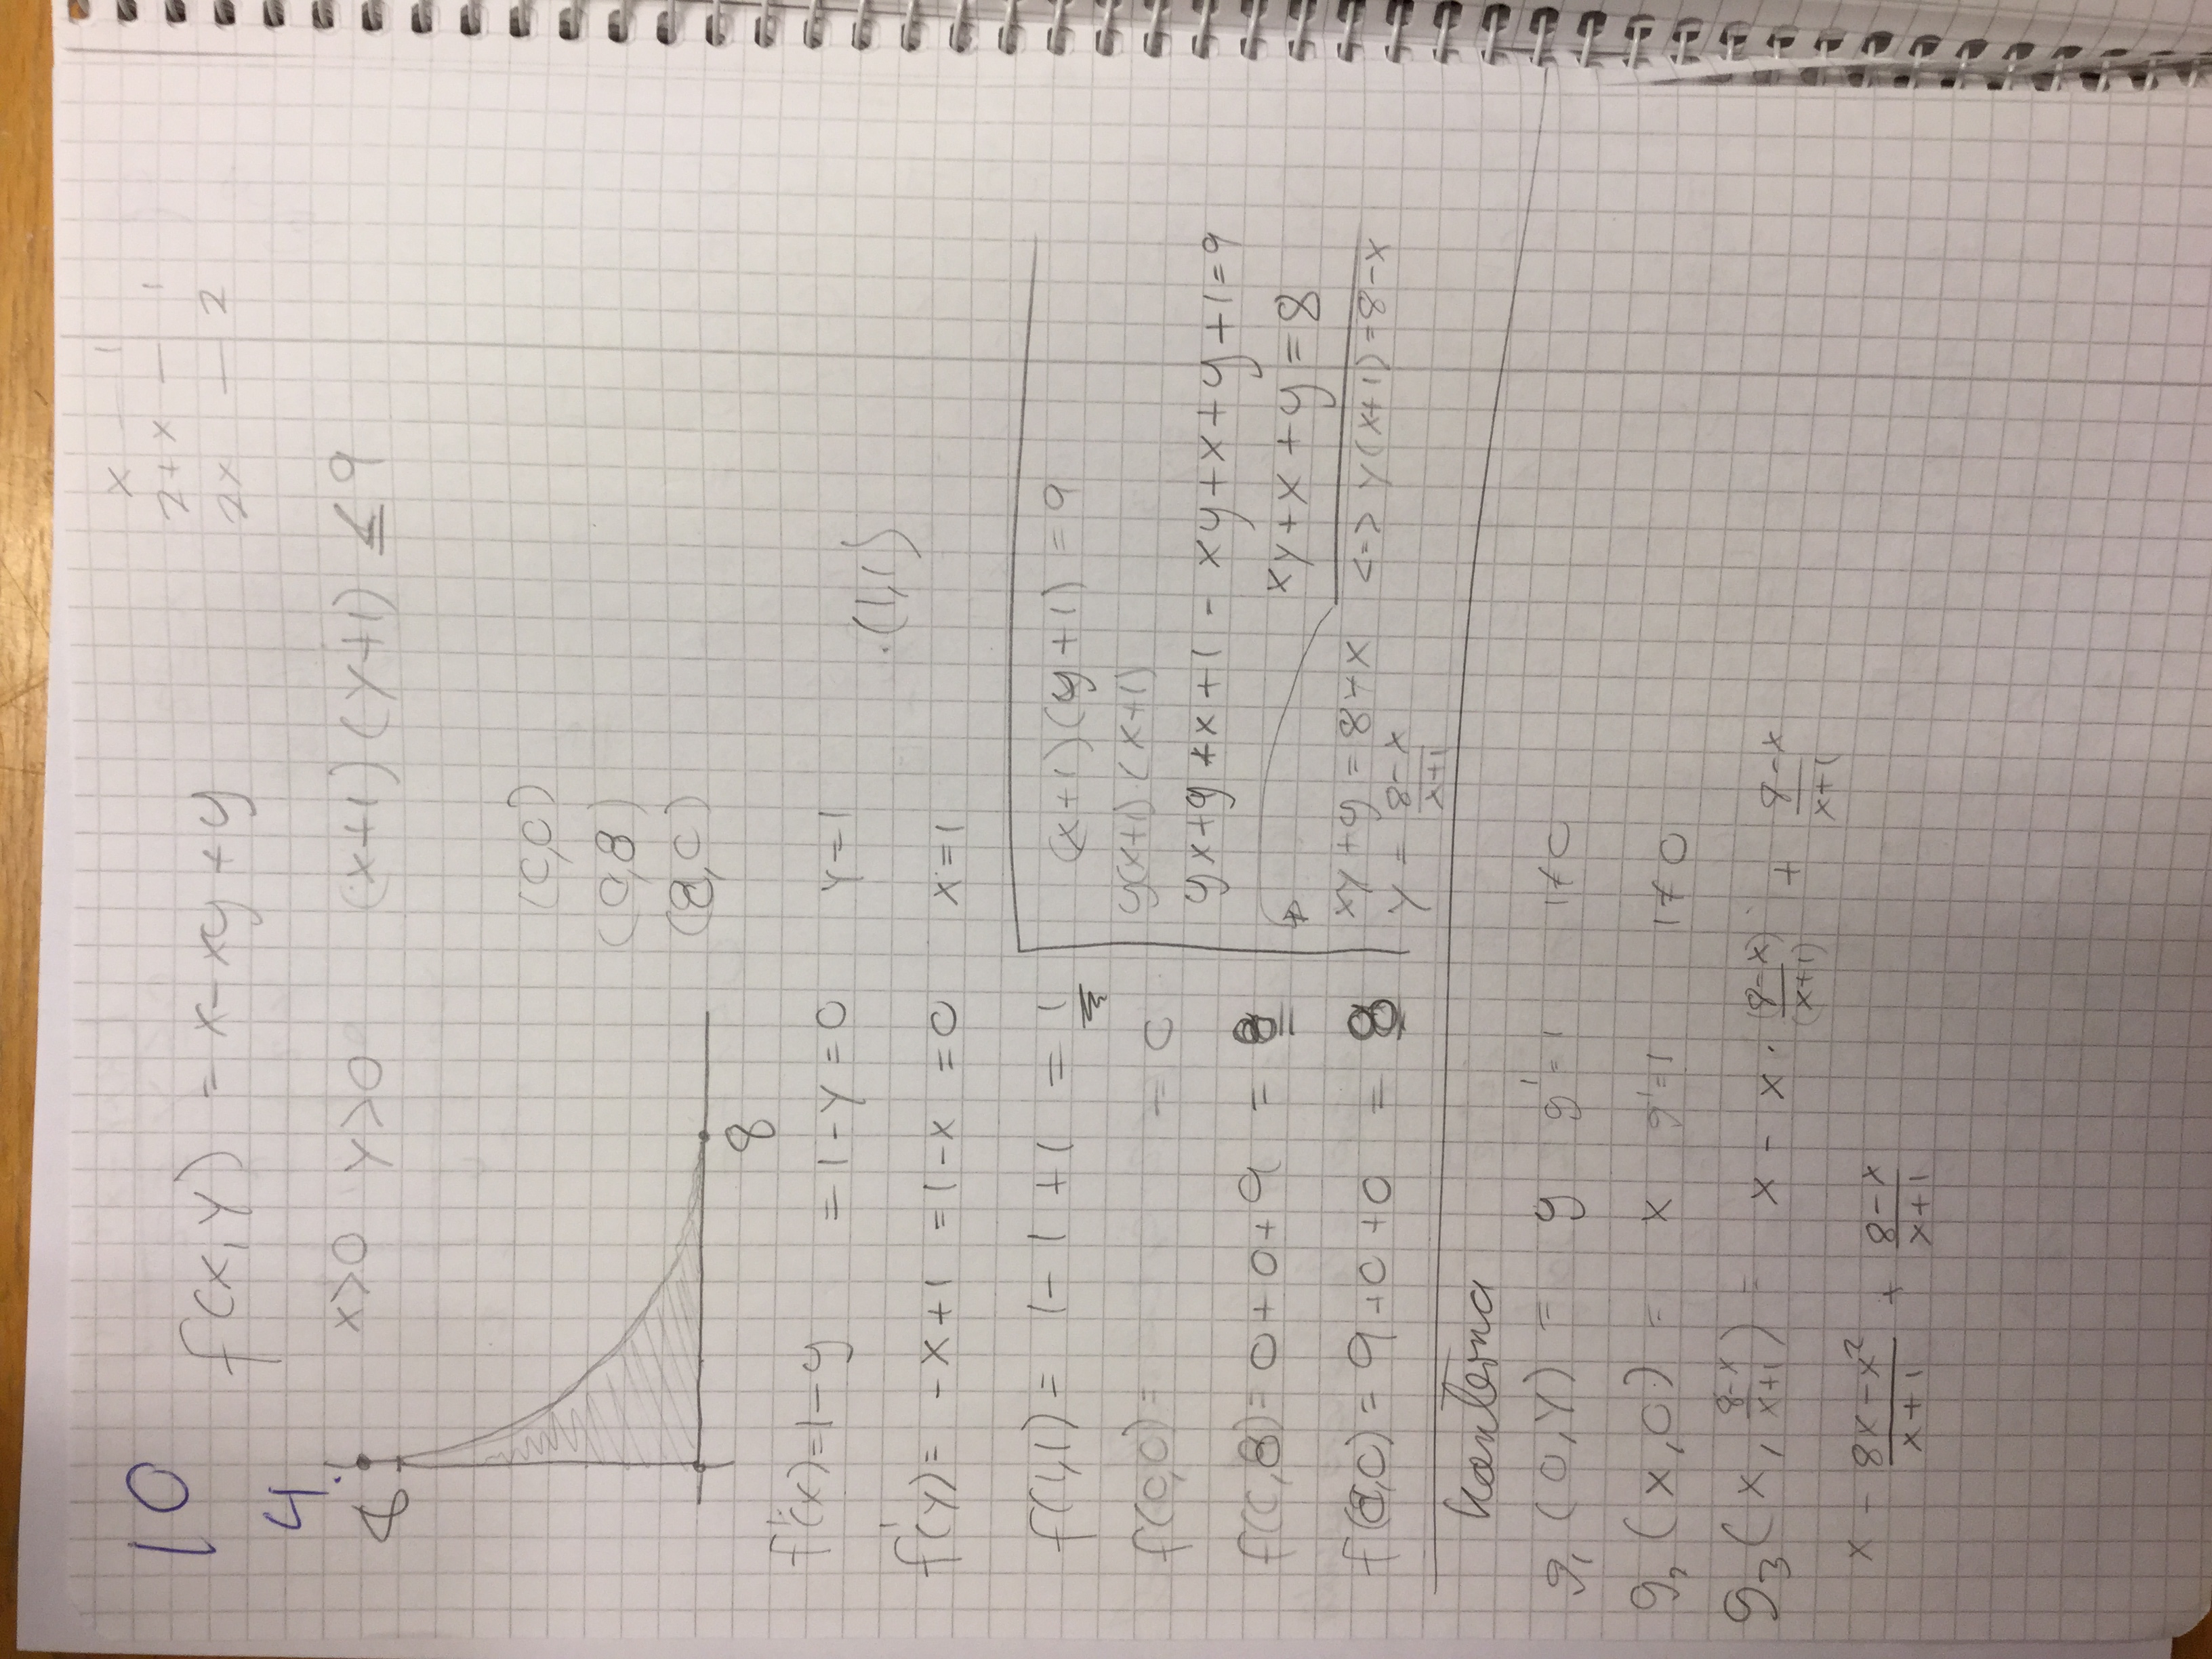 10
x - 1
2+x - 1
2x - 2
f(x,y) = x-xy+y
4.
x>0 y>0 (x+1)(y+1) ≤ 9
8
(0,0)
(0,8)
(8,0)
8
f'(x)=1-y =1-y=0 y=1
(1,1)
f'(y)= -x+1 =1-x =0 x=1
f(1,1)= 1-1+1 = 1
f(0,0)= = 0
f(0,8)= 0+0+9 = 8
f(8,0)= 9+0+0 = 8
(x+1)(y+1) = 9
y(x+1)(x+1)
yx+y+x+1 - xy+x+y+1=9
xy+x+y=8
xy+y=8-x <=> y(x+1)=8-x
y = 8-x/x+1
Kanterna
g₁(0,y) = y g'=1 1≠0
g₂(x,0) = x g'=1 1≠0
g₃(x, 8-x/x+1) = x - x · (8-x)/(x+1) + 8-x/x+1
x - 8x-x²/x+1 + 8-x/x+1